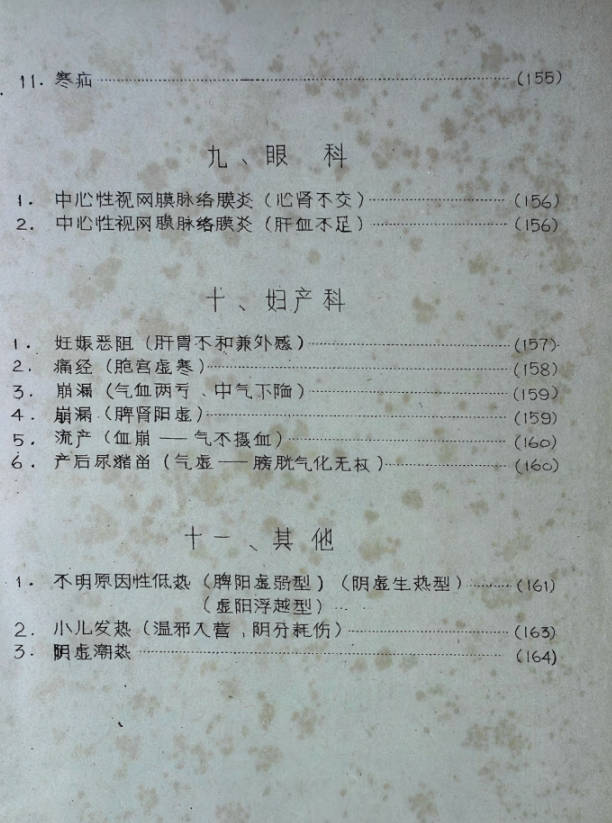 11. 寒疝 (155)
九、眼 科
1. 中心性视网膜脉络膜炎(心肾不交) (156)
2. 中心性视网膜脉络膜炎(肝血不足) (156)
十、妇产科
1. 妊娠恶阻(肝胃不和兼外感) (157)
2. 痛经(胞宫虚寒) (158)
3. 崩漏(气血两亏、中气下陷) (159)
4. 崩漏(脾肾阳虚) (159)
5. 流产(血崩——气不摄血) (160)
6. 产后尿潴留(气虚——膀胱气化无权) (160)
十一、其 他
1. 不明原因性低热(脾阳虚弱型)(阴虚生热型) (161)
(虚阳浮越型)
2. 小儿发热(温邪入营,阴分耗伤) (163)
3. 阴虚潮热 (164)